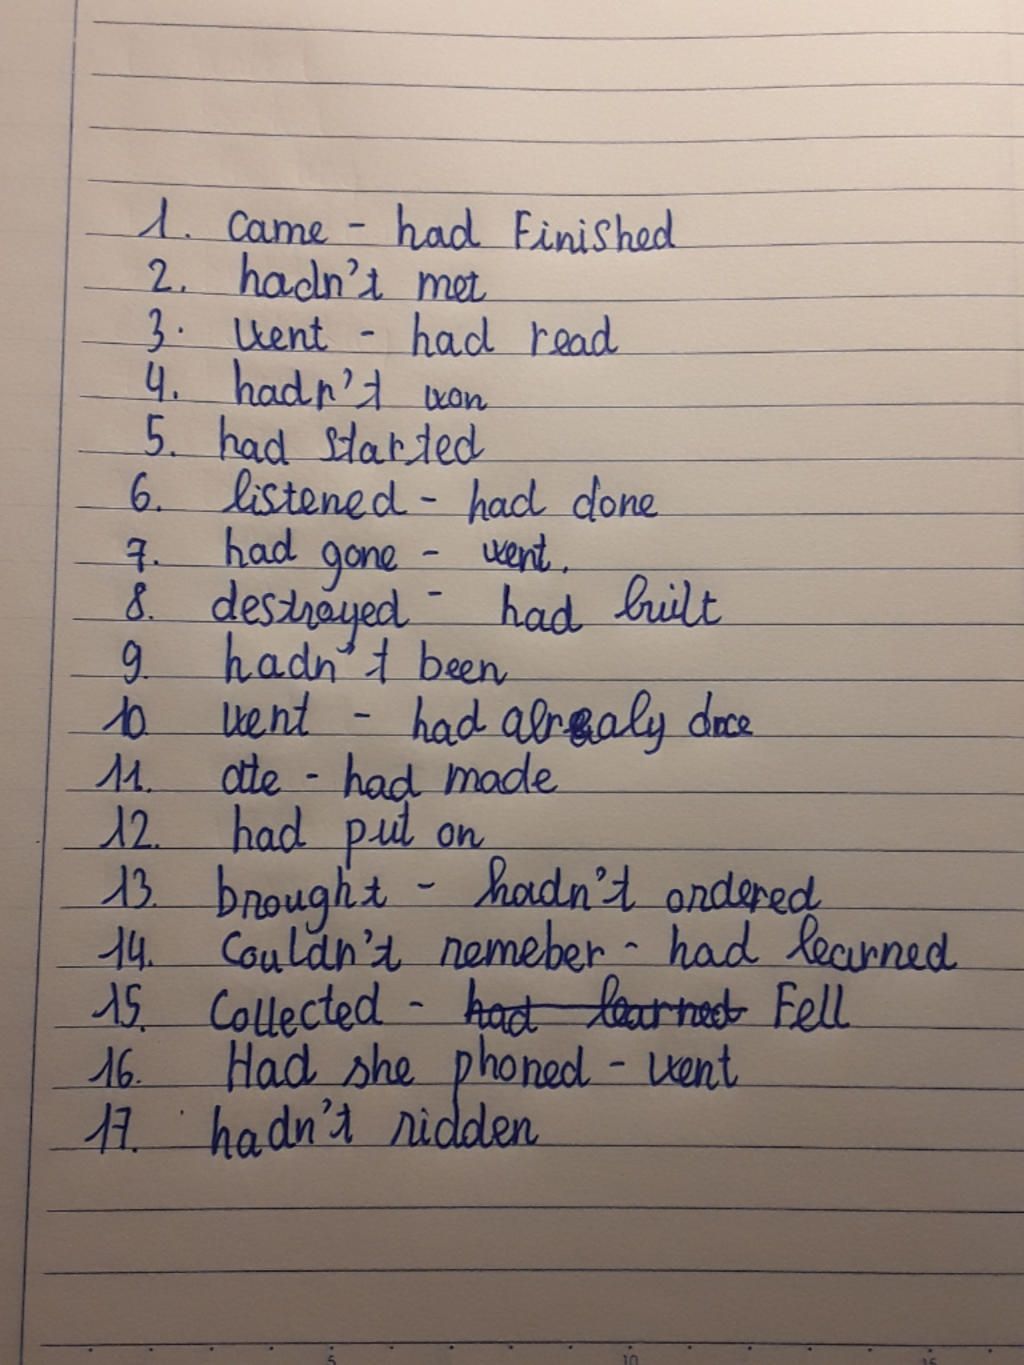 1. came - had Finished
2. hadn't met
3. went - had read
4. hadn't won
5. had started
6. listened - had done
7. had gone - went.
8. destroyed - had built
9. hadn't been
10 went - had
11. ate - had made
12. had put on
13. brought - hadn't ordered
14. Couldn't remeber - had learned
15. Collected - had learned Fell
16. Had she phoned - went
17. hadn't ridden
5 10 15